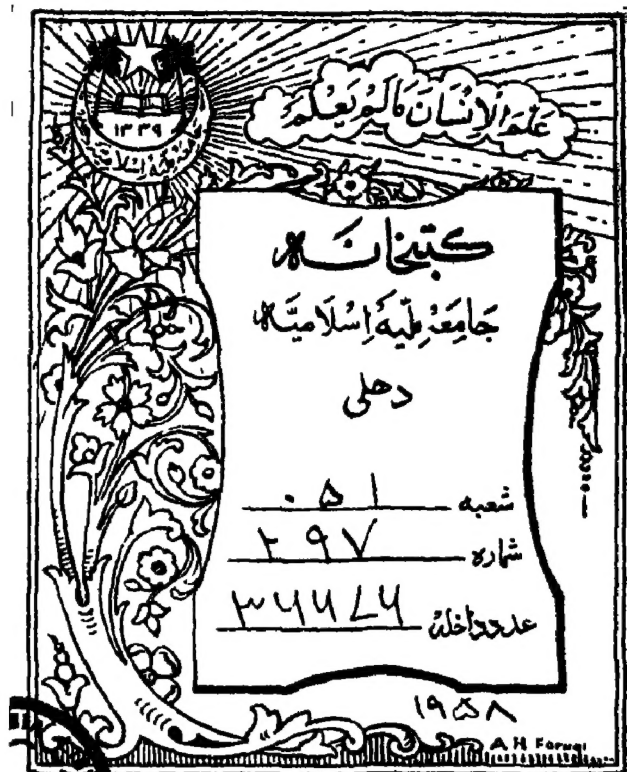 علم الانسان مالم يعلم
١٣٣٩
کتبخانہ
جَامِعَہ مِلّیَہ اِسْلَامِیَّہ
دھلی
شعبہ ۰۵۱
شمارہ ۲۹۷
عدد داخلہ
۱۹۵۸
A H Faruqi